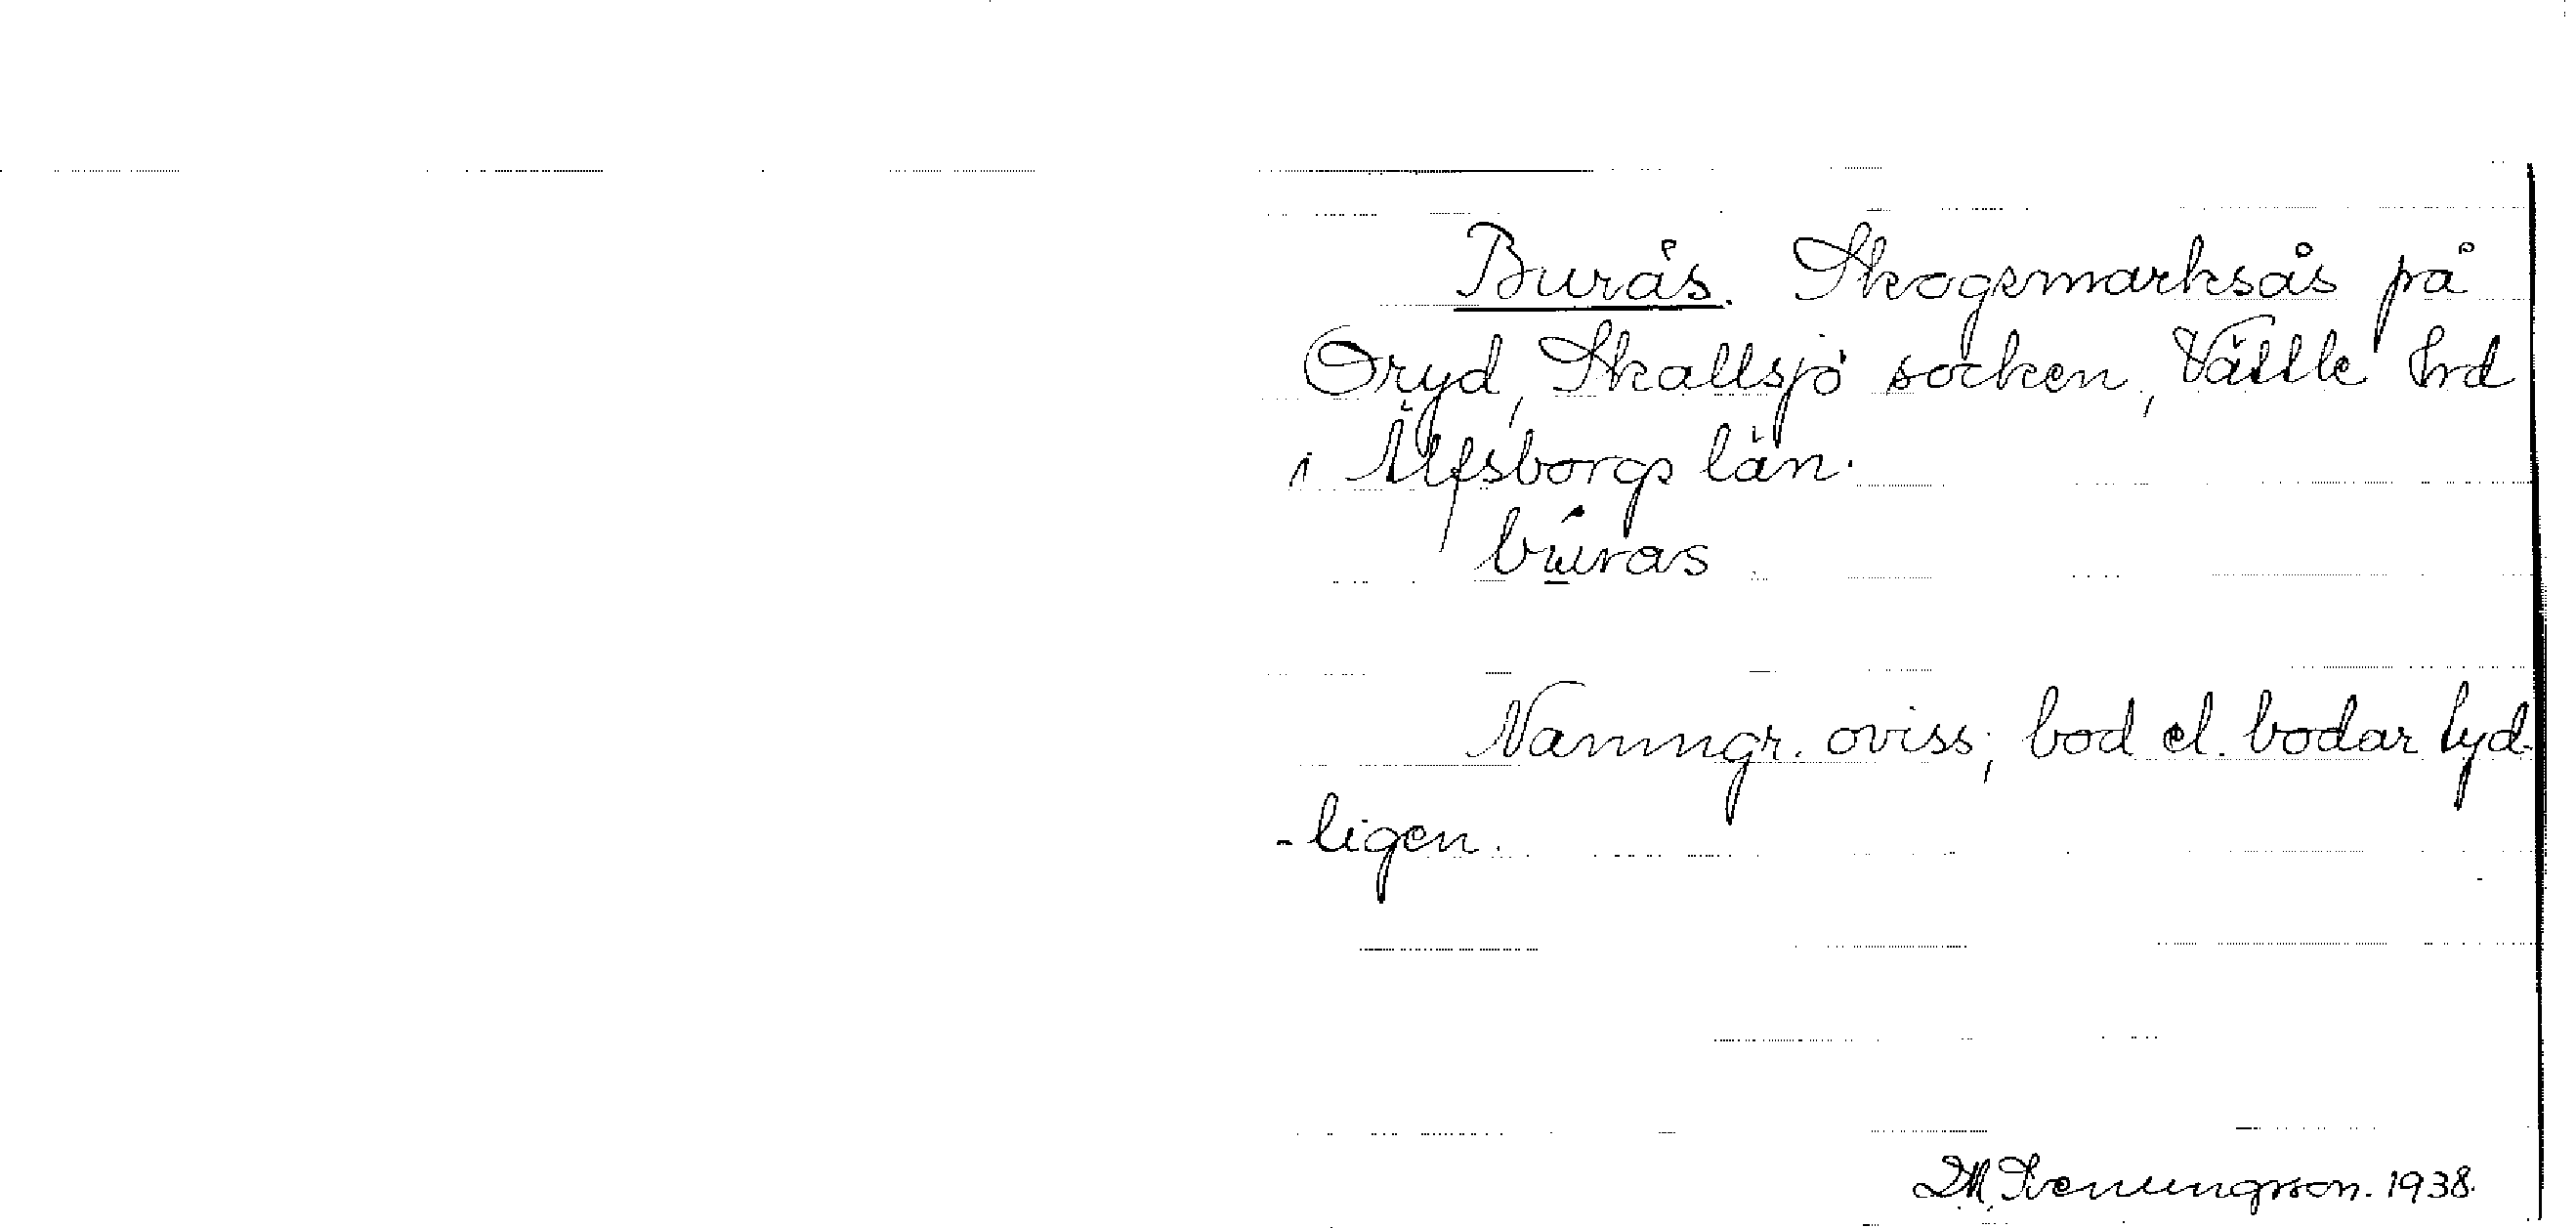 Burås. Skogsmarksås på
Öryd, Skallsjö socken, Vättle hrd
i Älfsborgs län.
bu̲ras
Namngr. oviss; bod el. bodar tyd-
-ligen.
D.M. Svenungsson. 1938.